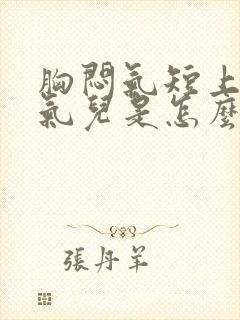 胸悶氣短上
氣兒是怎麼
張丹羊